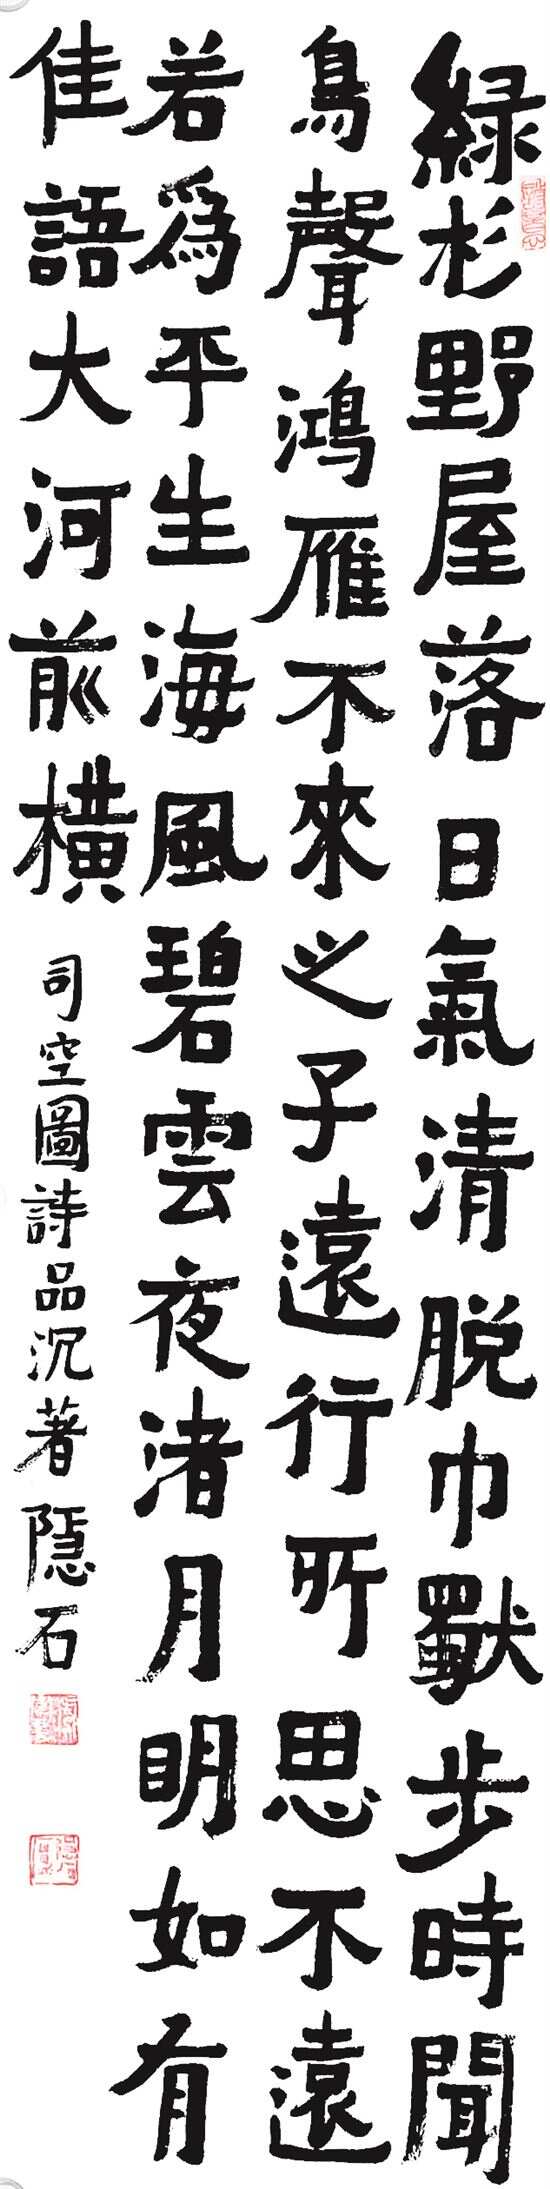 綠杉野屋落日氣清脫巾獸步時聞
鳥聲鴻雁不來之子遠行所思不遠
若爲平生海風碧雲夜渚月明如有
佳語大河前橫
司空圖詩品沉著隱石